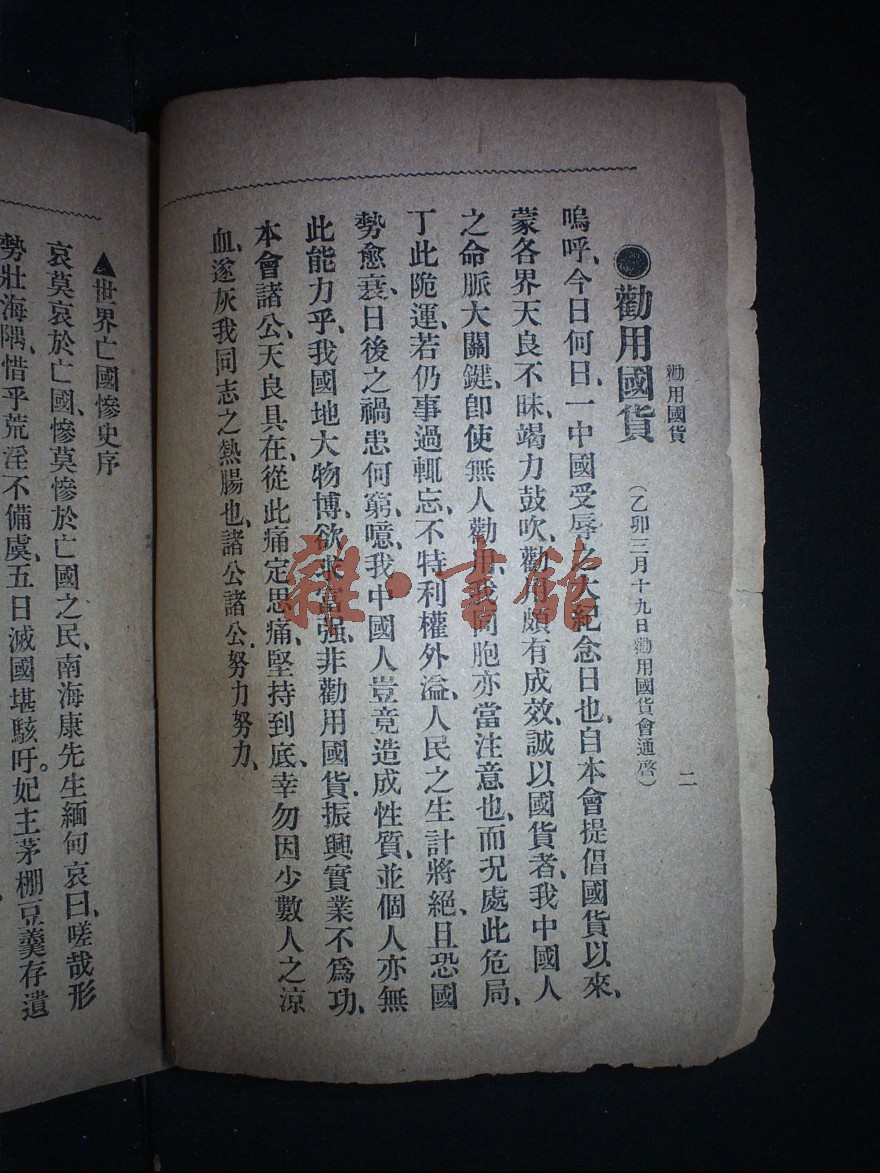 勸用國貨
二
●勸用國貨
(乙卯三月十九日勸用國貨會通啓)
嗚呼、今日何日、一中國受辱之大紀念日也、自本會提倡國貨以來、
蒙各界天良不昧、竭力鼓吹、勸用頗有成效、誠以國貨者、我中國人
之命脈大關鍵、卽使無人勸用、我同胞亦當注意也、而況處此危局、
丁此陁運、若仍事過輒忘、不特利權外溢、人民之生計將絕、且恐國
勢愈衰、日後之禍患何窮、噫、我中國人豈竟造成性質、並個人亦無
此能力乎、我國地大物博、欲求富强、非勸用國貨、振興實業不爲功、
本會諸公、天良具在、從此痛定思痛、堅持到底、幸勿因少數人之涼
血、遂灰我同志之熱腸也、諸公諸公、努力努力、
▲世界亡國慘史序
哀莫哀於亡國、慘莫慘於亡國之民、南海康先生緬甸哀曰、嗟哉形
勢壯海隅、惜乎荒淫不備虞、五日滅國堪駭吁。妃主茅棚豆羹存遺
雜·書館